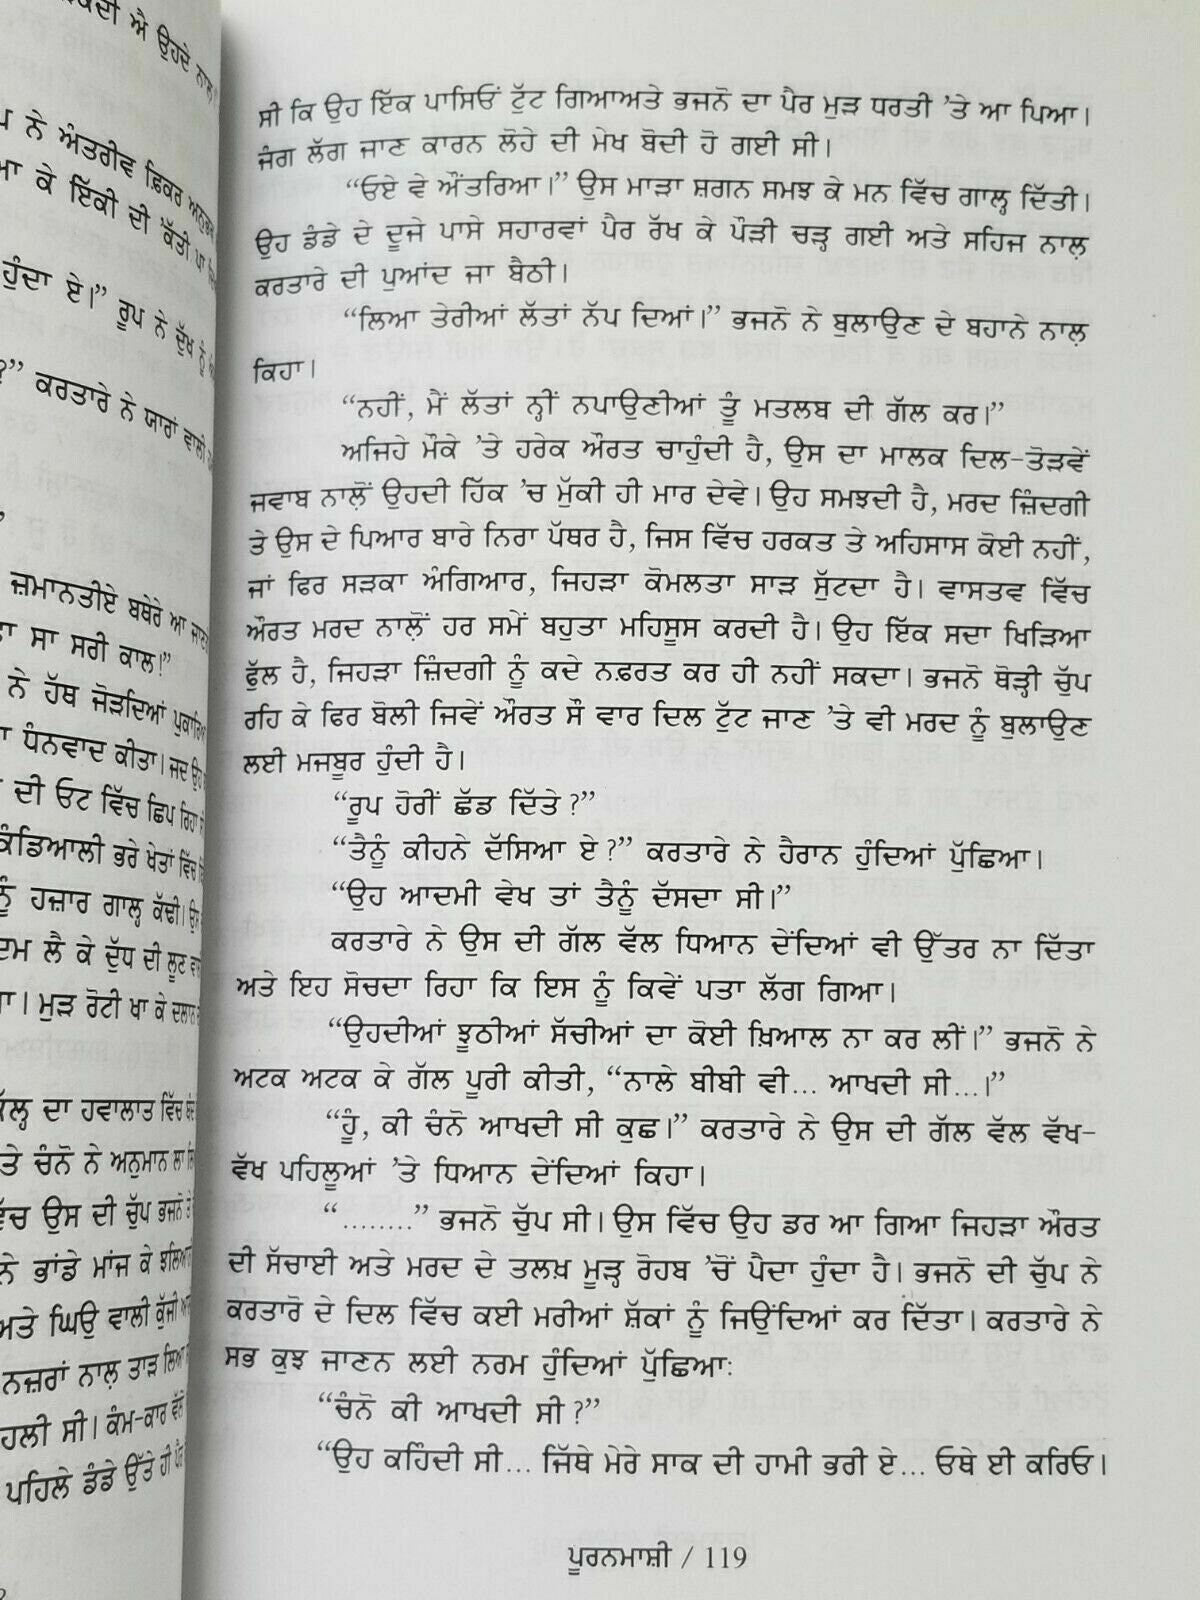 ਕਦੀ ਐ ਉਹਦੇ ਨਾਲ਼
ਨੇ ਅੰਤਰੀਵ ਫ਼ਿਕਰ
ਕੇ ਇੱਕੀ ਦੀ 'ਕੱਤੀ ਪਾ
ਹੁੰਦਾ ਏ।” ਰੂਪ ਨੇ ਦੁੱਖ ਨੂੰ
?” ਕਰਤਾਰੇ ਨੇ ਯਾਰਾਂ ਵਾਲੇ
ਜ਼ਮਾਨਤੀਏ ਬਥੇਰੇ ਆ
ਸਾ ਸਰੀ ਕਾਲ।”
ਨੇ ਹੱਥ ਜੋੜਦਿਆਂ
ਧੰਨਵਾਦ ਕੀਤਾ। ਜਦ ਉਹ
ਦੀ ਓਟ ਵਿੱਚ ਛਿਪ ਰਿਹਾ
ਕੰਡਿਆਲੀ ਭਰੇ ਖੇਤਾਂ ਵਿੱਚ
ਨੂੰ ਹਜ਼ਾਰ ਗਾਲ੍ਹ ਕੱਢੀ। ਉਸ
ਦਮ ਲੈ ਕੇ ਦੁੱਧ ਦੀ ਲੂਣ
ਮੁੜ ਰੋਟੀ ਖਾ ਕੇ
ਕੱਲ੍ਹ ਦਾ ਹਵਾਲਾਤ ਵਿੱਚ
ਤੇ ਚੰਨੋ ਨੇ ਅਨੁਮਾਨ ਲਾ
ਵਿੱਚ ਉਸ ਦੀ ਚੁੱਪ ਭਜਨੋ ਤੇ
ਨੇ ਭਾਂਡੇ ਮਾਂਜ ਕੇ
ਅਤੇ ਘਿਉ ਵਾਲੀ ਕੁੱਜੀ
ਨਜ਼ਰਾਂ ਨਾਲ਼ ਤਾੜ ਲਿਆ
ਹਲੀ ਸੀ। ਕੰਮ-ਕਾਰ ਵੱਲੋਂ
ਪਹਿਲੇ ਡੰਡੇ ਉੱਤੇ ਹੀ ਪੈਰ
ਸੀ ਕਿ ਉਹ ਇੱਕ ਪਾਸਿਓਂ ਟੁੱਟ ਗਿਆਅਤੇ ਭਜਨੋ ਦਾ ਪੈਰ ਮੁੜ ਧਰਤੀ ’ਤੇ ਆ ਪਿਆ।
ਜੰਗ ਲੱਗ ਜਾਣ ਕਾਰਨ ਲੋਹੇ ਦੀ ਮੇਖ ਬੋਦੀ ਹੋ ਗਈ ਸੀ।
“ਓਏ ਵੇ ਔਂਤਰਿਆ।” ਉਸ ਮਾੜਾ ਸ਼ਗਨ ਸਮਝ ਕੇ ਮਨ ਵਿੱਚ ਗਾਲ੍ਹ ਦਿੱਤੀ।
ਉਹ ਡੰਡੇ ਦੇ ਦੂਜੇ ਪਾਸੇ ਸਹਾਰਵਾਂ ਪੈਰ ਰੱਖ ਕੇ ਪੌੜੀ ਚੜ੍ਹ ਗਈ ਅਤੇ ਸਹਿਜ ਨਾਲ਼
ਕਰਤਾਰੇ ਦੀ ਪੁਆਂਦ ਜਾ ਬੈਠੀ।
“ਲਿਆ ਤੇਰੀਆਂ ਲੱਤਾਂ ਨੱਪ ਦਿਆਂ।” ਭਜਨੋ ਨੇ ਬੁਲਾਉਣ ਦੇ ਬਹਾਨੇ ਨਾਲ਼
ਕਿਹਾ।
“ਨਹੀਂ, ਮੈਂ ਲੱਤਾਂ ਨ੍ਹੀਂ ਨਪਾਉਣੀਆਂ ਤੂੰ ਮਤਲਬ ਦੀ ਗੱਲ ਕਰ।”
ਅਜਿਹੇ ਮੌਕੇ ’ਤੇ ਹਰੇਕ ਔਰਤ ਚਾਹੁੰਦੀ ਹੈ, ਉਸ ਦਾ ਮਾਲਕ ਦਿਲ-ਤੋੜਵੇਂ
ਜਵਾਬ ਨਾਲ਼ੋਂ ਉਹਦੀ ਹਿੱਕ ’ਚ ਮੁੱਕੀ ਹੀ ਮਾਰ ਦੇਵੇ। ਉਹ ਸਮਝਦੀ ਹੈ, ਮਰਦ ਜ਼ਿੰਦਗੀ
ਤੇ ਉਸ ਦੇ ਪਿਆਰ ਬਾਰੇ ਨਿਰਾ ਪੱਥਰ ਹੈ, ਜਿਸ ਵਿੱਚ ਹਰਕਤ ਤੇ ਅਹਿਸਾਸ ਕੋਈ ਨਹੀਂ,
ਜਾਂ ਫਿਰ ਸੜਕਾ ਅੰਗਿਆਰ, ਜਿਹੜਾ ਕੋਮਲਤਾ ਸਾੜ ਸੁੱਟਦਾ ਹੈ। ਵਾਸਤਵ ਵਿੱਚ
ਔਰਤ ਮਰਦ ਨਾਲ਼ੋਂ ਹਰ ਸਮੇਂ ਬਹੁਤਾ ਮਹਿਸੂਸ ਕਰਦੀ ਹੈ। ਉਹ ਇੱਕ ਸਦਾ ਖਿੜਿਆ
ਫੁੱਲ ਹੈ, ਜਿਹੜਾ ਜ਼ਿੰਦਗੀ ਨੂੰ ਕਦੇ ਨਫ਼ਰਤ ਕਰ ਹੀ ਨਹੀਂ ਸਕਦਾ। ਭਜਨੋ ਥੋੜ੍ਹੀ ਚੁੱਪ
ਰਹਿ ਕੇ ਫਿਰ ਬੋਲੀ ਜਿਵੇਂ ਔਰਤ ਸੌ ਵਾਰ ਦਿਲ ਟੁੱਟ ਜਾਣ ’ਤੇ ਵੀ ਮਰਦ ਨੂੰ ਬੁਲਾਉਣ
ਲਈ ਮਜਬੂਰ ਹੁੰਦੀ ਹੈ।
“ਰੂਪ ਹੋਰੀਂ ਛੱਡ ਦਿੱਤੇ?”
“ਤੈਨੂੰ ਕੀਹਨੇ ਦੱਸਿਆ ਏ?” ਕਰਤਾਰੇ ਨੇ ਹੈਰਾਨ ਹੁੰਦਿਆਂ ਪੁੱਛਿਆ।
“ਉਹ ਆਦਮੀ ਵੇਖ ਤਾਂ ਤੈਨੂੰ ਦੱਸਦਾ ਸੀ।”
ਕਰਤਾਰੇ ਨੇ ਉਸ ਦੀ ਗੱਲ ਵੱਲ ਧਿਆਨ ਦੇਂਦਿਆਂ ਵੀ ਉੱਤਰ ਨਾ ਦਿੱਤਾ
ਅਤੇ ਇਹ ਸੋਚਦਾ ਰਿਹਾ ਕਿ ਇਸ ਨੂੰ ਕਿਵੇਂ ਪਤਾ ਲੱਗ ਗਿਆ।
“ਉਹਦੀਆਂ ਝੂਠੀਆਂ ਸੱਚੀਆਂ ਦਾ ਕੋਈ ਖ਼ਿਆਲ ਨਾ ਕਰ ਲੀਂ।” ਭਜਨੋ ਨੇ
ਅਟਕ ਅਟਕ ਕੇ ਗੱਲ ਪੂਰੀ ਕੀਤੀ, “ਨਾਲੇ ਬੀਬੀ ਵੀ... ਆਖਦੀ ਸੀ...।”
“ਹੂੰ, ਕੀ ਚੰਨੋ ਆਖਦੀ ਸੀ ਕੁਛ।” ਕਰਤਾਰੇ ਨੇ ਉਸ ਦੀ ਗੱਲ ਵੱਲ ਵੱਖ-
ਵੱਖ ਪਹਿਲੂਆਂ ’ਤੇ ਧਿਆਨ ਦੇਂਦਿਆਂ ਕਿਹਾ।
“........” ਭਜਨੋ ਚੁੱਪ ਸੀ। ਉਸ ਵਿੱਚ ਉਹ ਡਰ ਆ ਗਿਆ ਜਿਹੜਾ ਔਰਤ
ਦੀ ਸੱਚਾਈ ਅਤੇ ਮਰਦ ਦੇ ਤਲਖ਼ ਮੂੜ੍ਹ ਰੋਹਬ ’ਚੋਂ ਪੈਦਾ ਹੁੰਦਾ ਹੈ। ਭਜਨੋ ਦੀ ਚੁੱਪ ਨੇ
ਕਰਤਾਰੋ ਦੇ ਦਿਲ ਵਿੱਚ ਕਈ ਮਰੀਆਂ ਸ਼ੱਕਾਂ ਨੂੰ ਜਿਉਂਦਿਆਂ ਕਰ ਦਿੱਤਾ। ਕਰਤਾਰੇ ਨੇ
ਸਭ ਕੁਝ ਜਾਣਨ ਲਈ ਨਰਮ ਹੁੰਦਿਆਂ ਪੁੱਛਿਆ:
“ਚੰਨੋ ਕੀ ਆਖਦੀ ਸੀ?”
“ਉਹ ਕਹਿੰਦੀ ਸੀ... ਜਿੱਥੇ ਮੇਰੇ ਸਾਕ ਦੀ ਹਾਮੀ ਭਰੀ ਏ... ਓਥੇ ਈ ਕਰਿਓ।
ਪੂਰਨਮਾਸ਼ੀ / 119